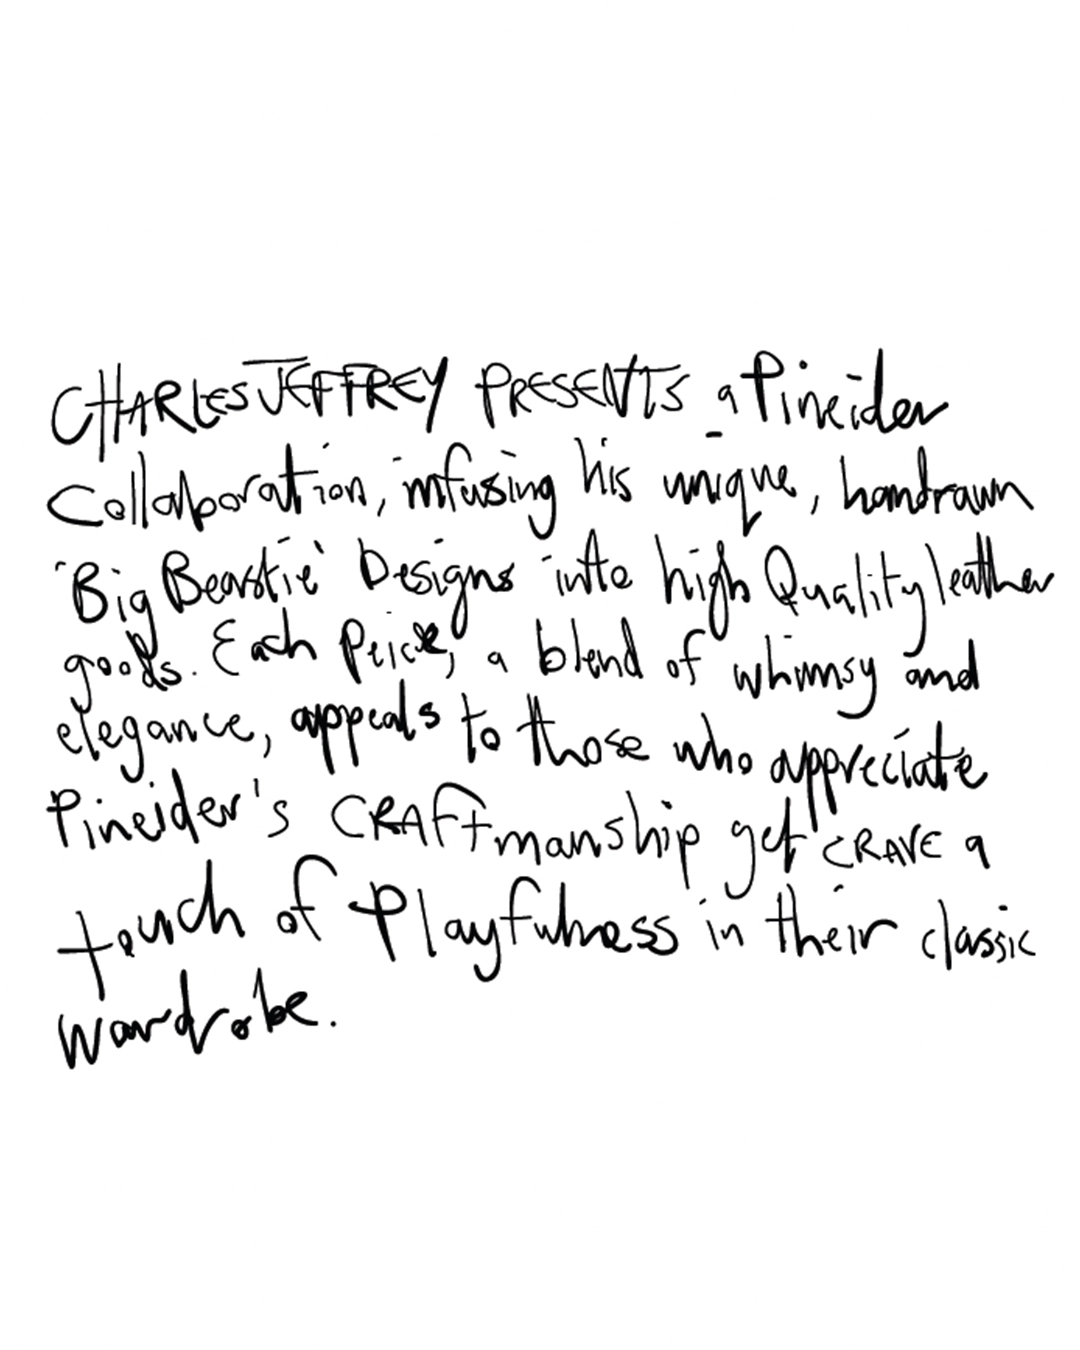 CHARLES JEFFREY PRESENTS a Pineider
Collaboration, infusing his unique, handrawn
'Big Beastie' Designs into high Quality leather
goods. Each Peice, a blend of whimsy and
elegance, appeals to those who appreciate
Pineider's CRAftmanship yet CRAVE a
touch of Playfulness in their classic
wardrobe.